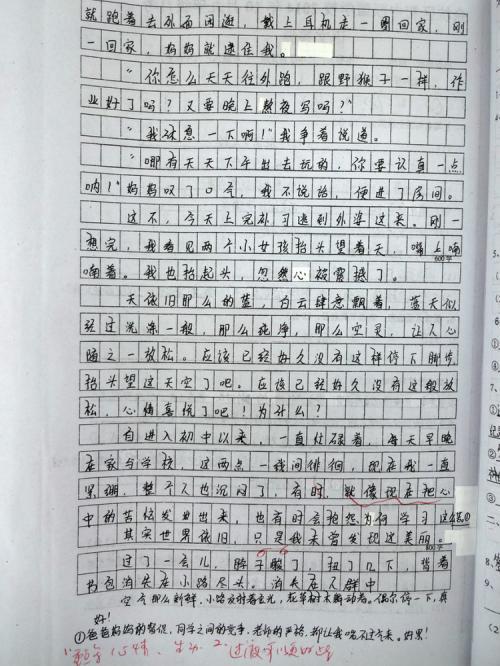 就跑着去外面闲逛，戴上耳机走一圈回家，刚
一回家，妈妈就逮住我。
“你怎么天天往外跑，跟野猴子一样，作
业好了吗？又要晚上熬夜写吗？”
“我休息一下啊！”我争着说道。
“哪有天天下午出去玩的，你要认真一点
呐！”妈妈叹了口气，我不说话，便进了房间。
这不，今天上完补习逃到外婆这来。刚一
想完，我看见两个小女孩抬头望着天，嘴上喃
600字
喃着。我也抬起头，忽然心被震撼了。
天依旧那么的蓝，白云肆意飘着，蓝天似
经过洗涤一般，那么纯净，那么空灵，让人心
随之一放松。应该已经好久没有这样停下脚步，
抬头望这天空了吧。应该已经好久没有这般放
松，心情喜悦了吧！为什么？
自进入初中以来，一直忙碌着，每天早晚
在家与学校，这两点一线间徘徊，现在我一直
紧绷，整个人也沉闷了，有时，就像现在把心
中的苦恼发出来，也有时会抱怨为何学习这①
其实世界依旧，只是我未曾发现这美丽。
800字
过了一会儿，脖子酸了，扭了几下，背着
书包消失在小路尽头。消失在人群中
空气那么新鲜，小路反射着金光，花草树木舞动着。偶尔停一下，真
好！
①爸爸妈妈的督促，同学之间的竞争，老师的严格，都让我喘不过气来。好累！